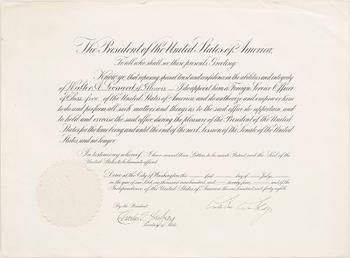 The President of the United States of America,
To all who shall see these presents, Greeting:
Know ye, that reposing special trust and confidence in the abilities and integrity
of Walter A. Leonard of Illinois I do appoint him a Foreign Service Officer
of Class five of the United States of America, and do authorize and empower him
to do and perform all such matters and things as to the said office do appertain, and
to hold and exercise the said office during the pleasure of the President of the United
States for the time being and until the end of the next Session of the Senate of the United
States, and no longer.
In testimony whereof, I have caused these Letters to be made Patent and the Seal of the
United States to be hereunto affixed.
Done at the City of Washington this first day of July
in the year of our Lord one thousand nine hundred and twenty-four and of the
Independence of the United States of America the one hundred and forty-eighth.
Calvin Coolidge
By the President:
Charles E. Hughes
Secretary of State.